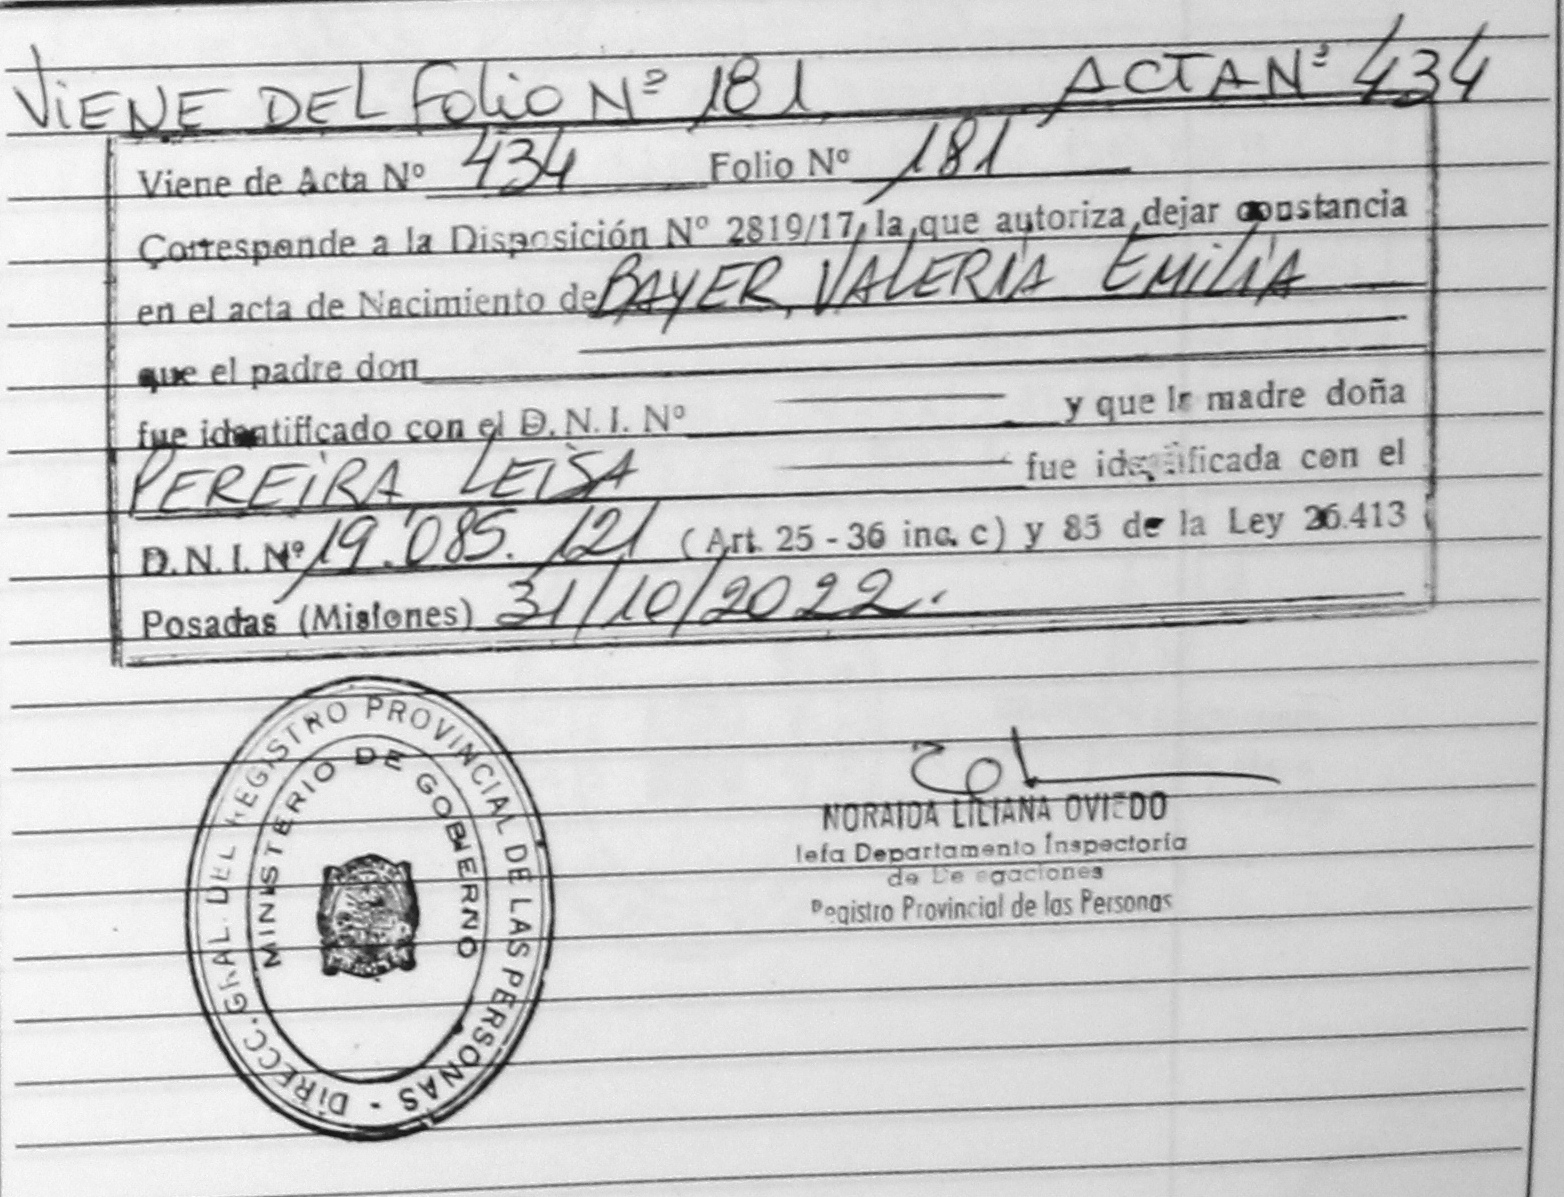 VIENE DEL FOLIO Nº 181 ACTA Nº 434
Viene de Acta Nº 434 Folio Nº 181
Corresponde a la Disposición Nº 2819/17, la que autoriza dejar constancia
en el acta de Nacimiento de BAYER, VALERIA EMILIA
que el padre don
fue identificado con el D.N.I. Nº y que la madre doña
PEREIRA, LEISA fue identificada con el
D.N.I. Nº 19.085.121 (Art. 25 - 36 inc. c) y 85 de la Ley 26.413
Posadas (Misiones) 31/10/2022.
DIRECC. GRAL. DEL REGISTRO PROVINCIAL DE LAS PERSONAS -
MINISTERIO DE GOBIERNO
NORAIDA LILIANA OVIEDO
Jefa Departamento Inspectoría
de Delegaciones
Registro Provincial de las Personas